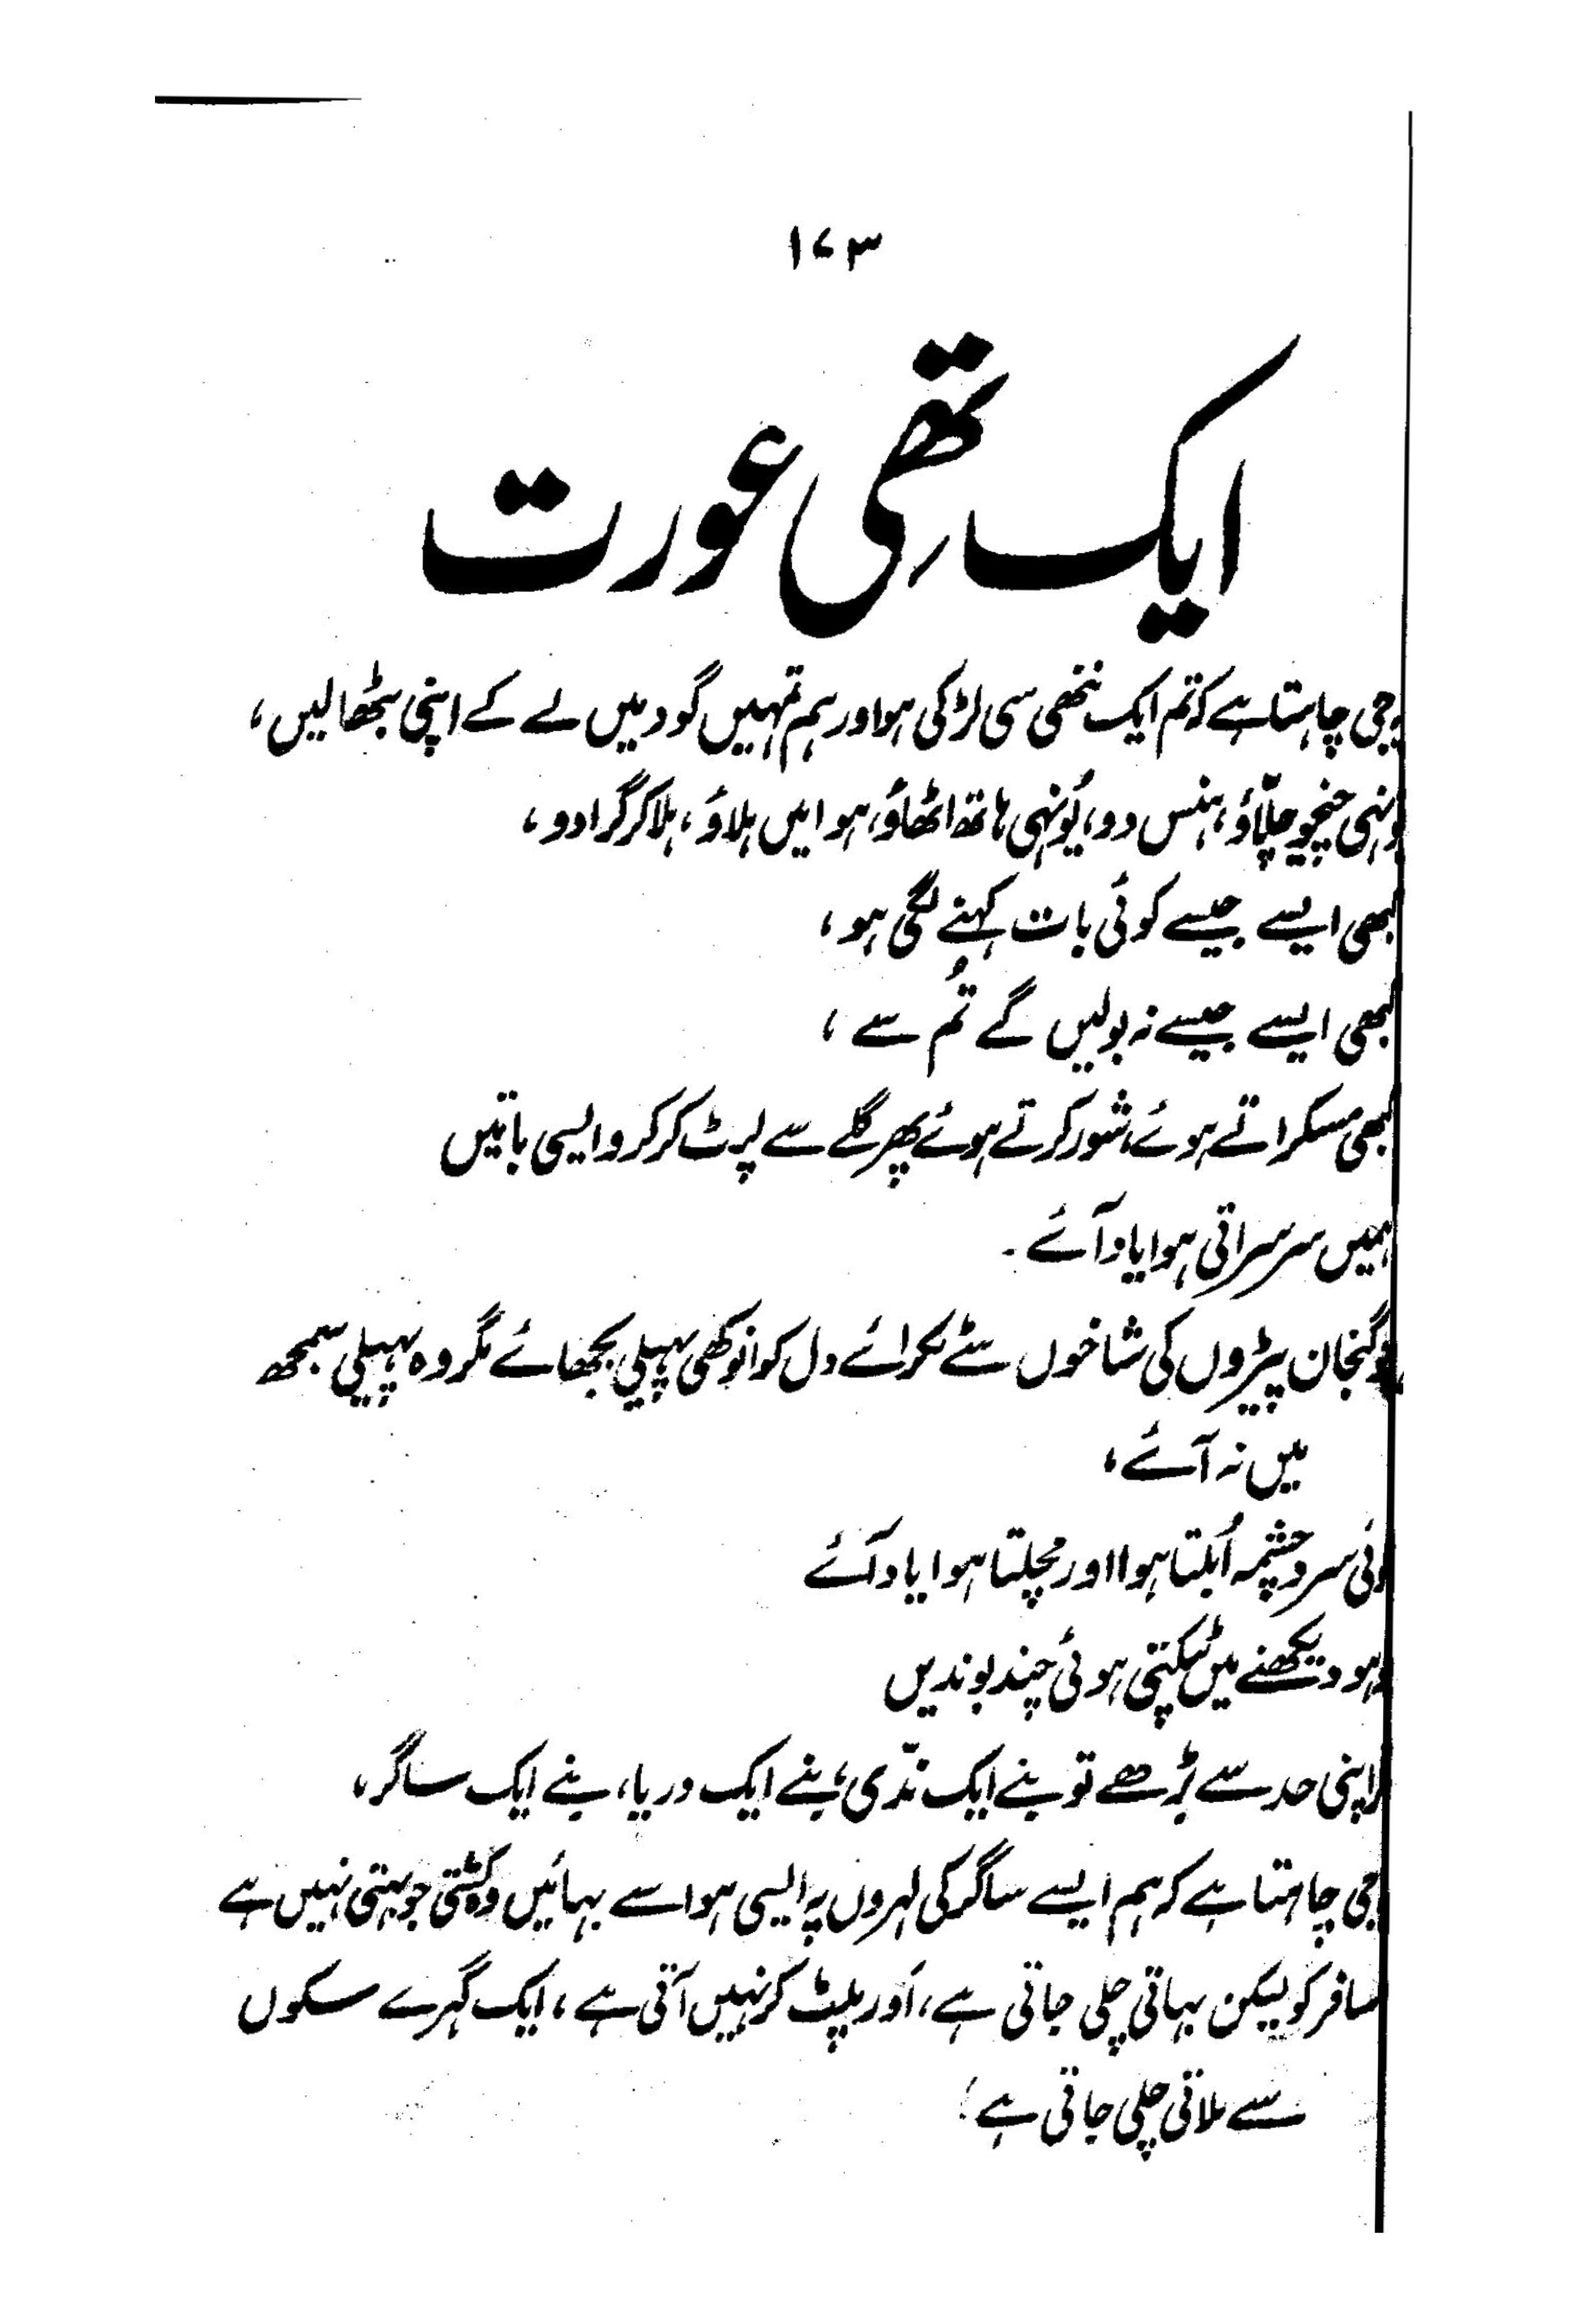 ۱۷۳
ایک تھی عورت
یہ جی چاہتا ہے کہ تم ایک ننھی سی لڑکی ہو اور ہم تمہیں گود میں لے کے اپنی بٹھا لیں،
یونہی چیخو چلّاؤ، ہنس دو، یُونہی ہاتھ اٹھاؤ، ہوا میں ہلاؤ، ہلا کر گرا دو،
کبھی ایسے جیسے کوئی بات کہنے لگی ہو،
کبھی ایسے جیسے نہ بولیں گے تُم سے،
کبھی مسکراتے ہوئے، شور کرتے ہوئے پھر گلے سے لپٹ کر کرو ایسی باتیں
ہمیں سرسراتی ہوا یاد آئے۔
جو گنجان پیڑوں کی شاخوں سے ٹکرائے دل کو انوکھی پہیلی بجھائے مگر وہ پہیلی سمجھ
میں نہ آئے،
کوئی سرد چشمہ اُبلتا ہوا اور مچلتا ہوا یاد آئے
جو ہو دیکھنے میں ٹپکتی ہوئی چند بوندیں
مگر اپنی حد سے بڑھے تو بنے ایک ندّی، بنے ایک دریا، بنے ایک ساگر،
یہ جی چاہتا ہے کہ ہم ایسے ساگر کی لہروں پہ ایسی ہوا سے بہائیں وہ کشتی جو بہتی نہیں ہے
مسافر کو لیکن بہاتی چلی جاتی ہے، اَور پلٹ کر نہیں آتی ہے، ایک گہرے سکوں
سے ملاتی چلی جاتی ہے؛